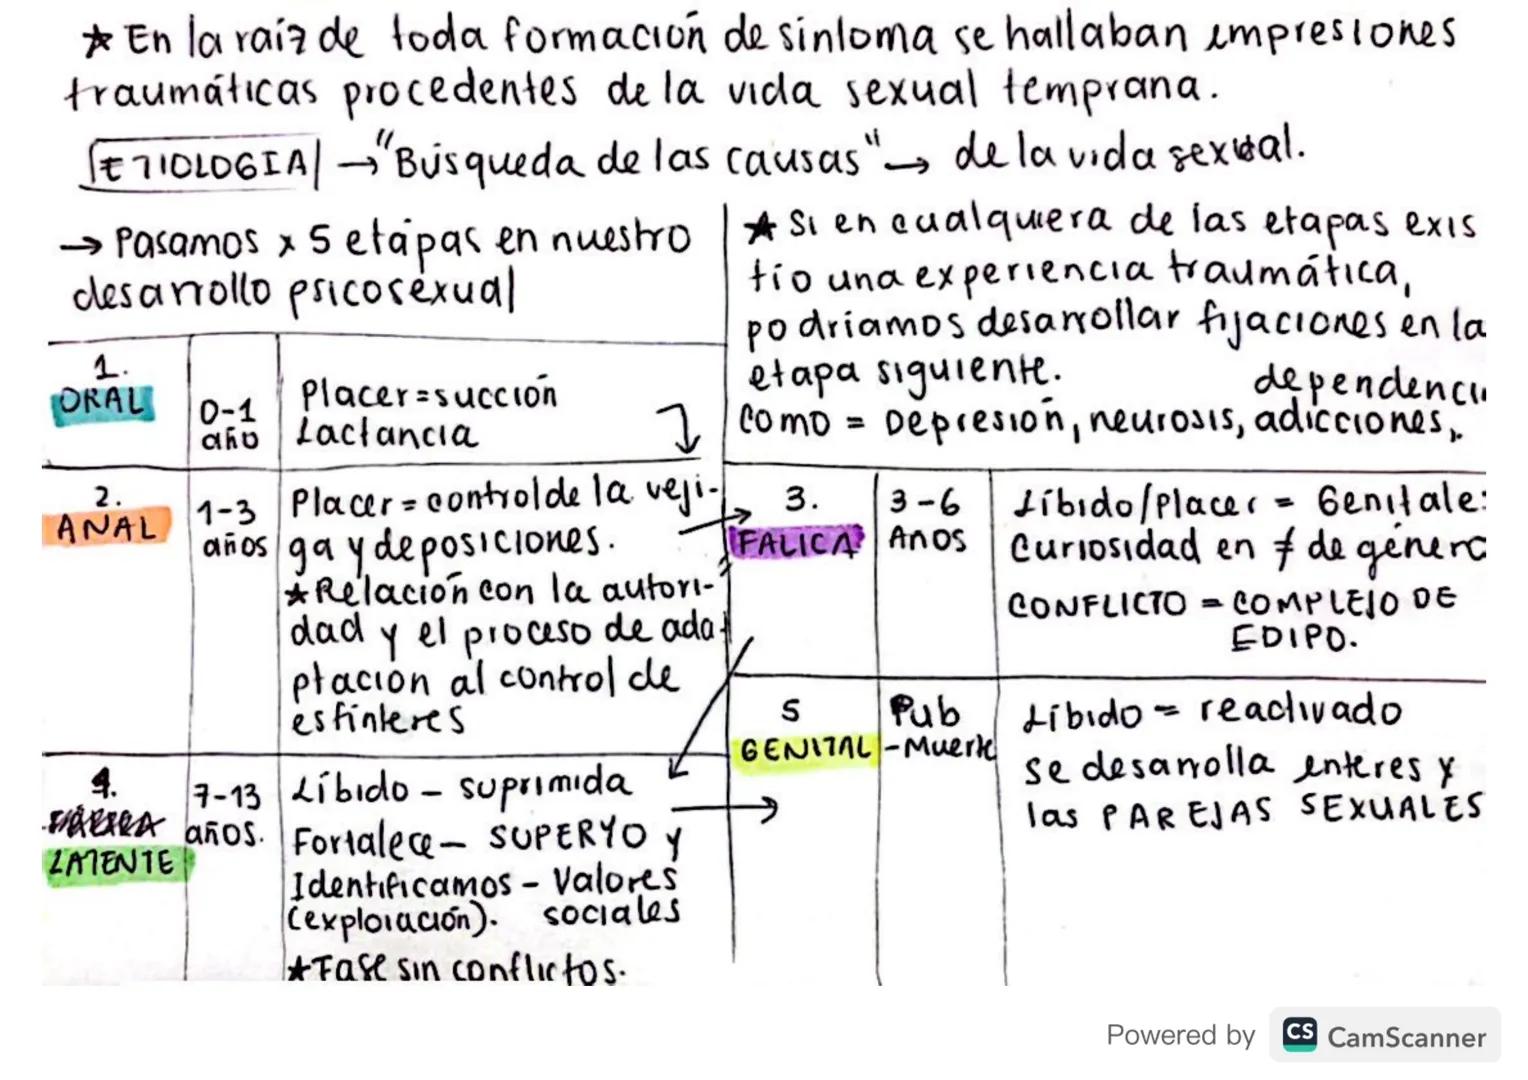 ★ En la raíz de toda formación de sintoma se hallaban impresiones
traumáticas procedentes de la vida sexual temprana.
ETIOLOGIA → "Búsqueda de las causas" → de la vida sexual.
→ Pasamos x 5 etapas en nuestro
desarrollo psicosexual
★ Si en cualquiera de las etapas exis
tio una experiencia traumática,
podriamos desarrollar fijaciones en la
etapa siguiente.
dependenci
Como = Depresión, neurosis, adicciones,
1.
ORAL
0-1
año
Placer = succión
Lactancia
2.
ANAL
1-3
años
Placer = control de la veji-
ga y deposiciones.
★ Relación con la autori-
dad y el proceso de ada-
ptacion al control de
esfinteres
3.
FALICA
3-6
Años
Líbido/Placer = Genitale
Curiosidad en ≠ de género
CONFLICTO = COMPLEJO DE
EDIPO.
4.
LATENTE
7-13
años.
Líbido - suprimida
Fortalece - SUPERYO y
Identificamos - Valores
(exploración). sociales
★ Fase sin conflictos.
5
GENITAL
Pub
-Muerte
Líbido = reactivado
se desarrolla enteres x
las PAREJAS SEXUALES
Powered by CS CamScanner